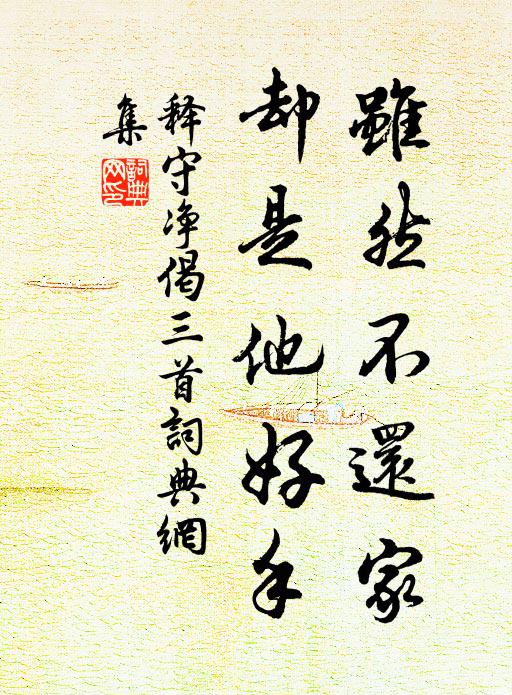 雖然不還家
却是他好手
释守净偈三首詞典網
集
詞典
网印